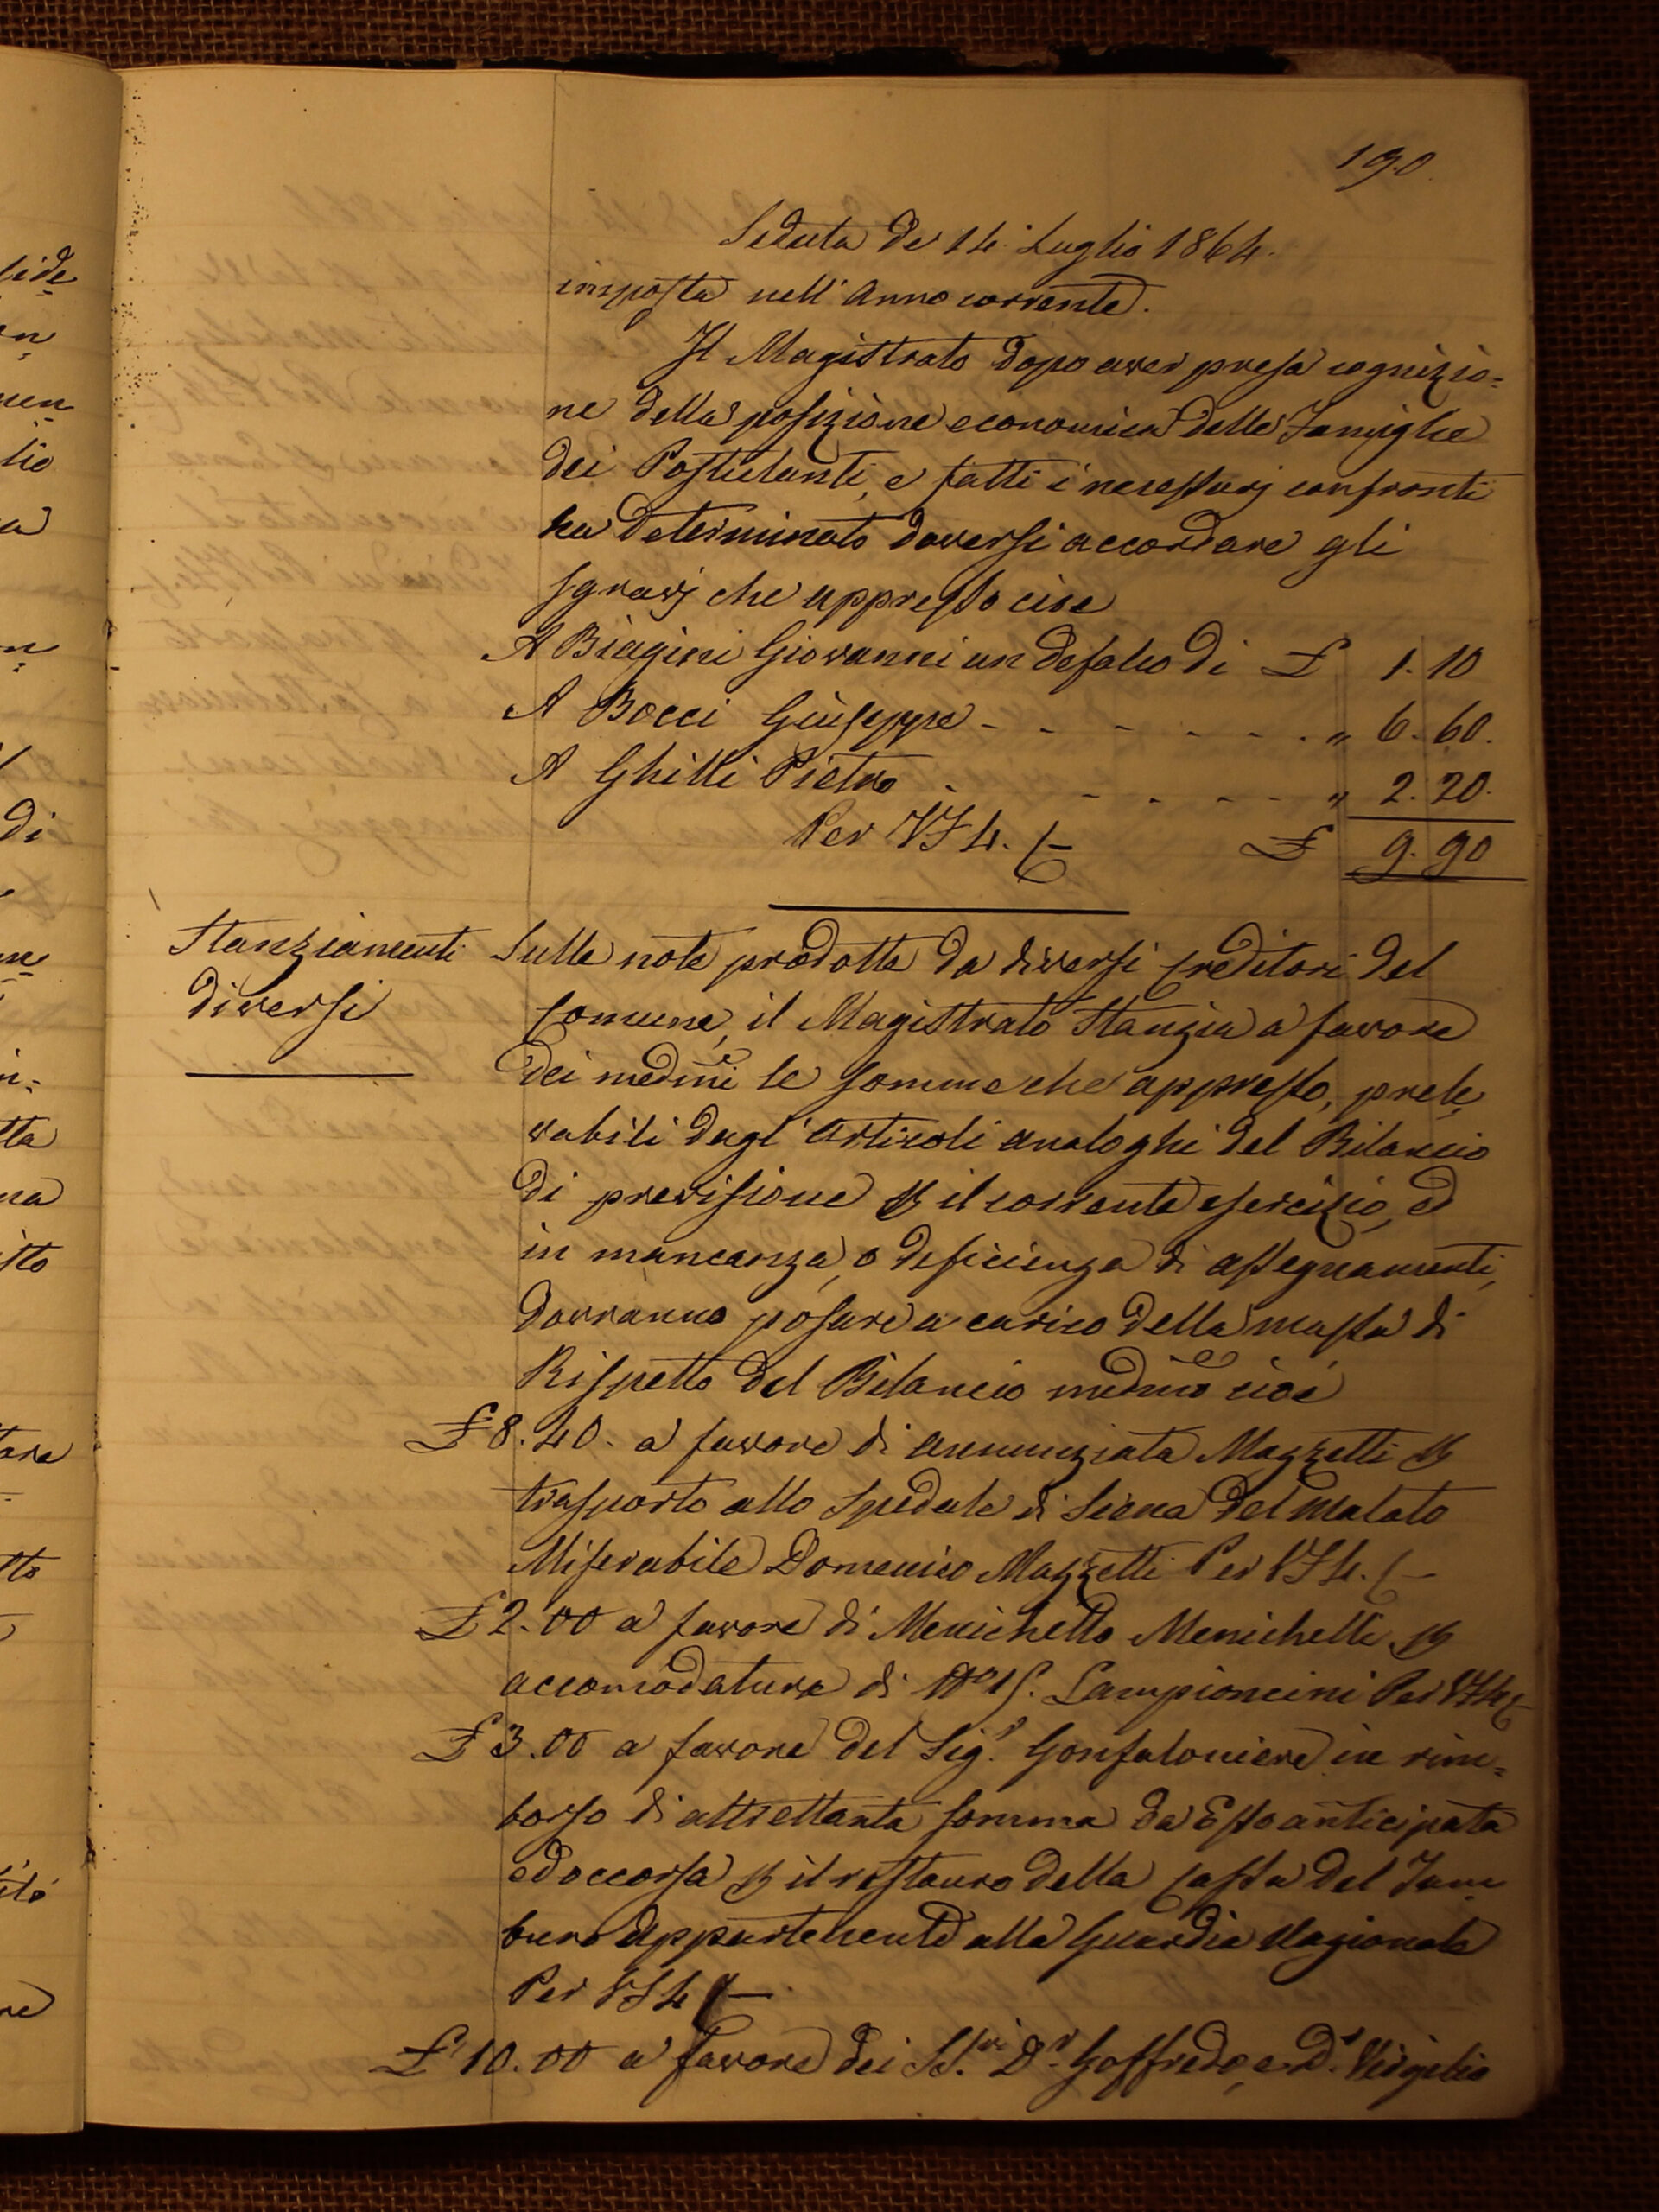 190
Seduta de' 14. Luglio 1864.
imposta nell' Anno corrente.
Il Magistrato dopo aver presa cognizio=
ne della posizione economica delle Famiglie
dei Postulanti, e fatti i necessarj confronti
ha determinato doversi accordare gli
sgravj che appresso cioe
A Biagini Giovanni un defalco di £ 1. 10
A Bocci Giuseppe - - - - - - - " 6. 60.
A Ghilli Pietro - - - - - - " 2. 20.
Per VF 4. £ 9. 90
Stanziamenti
diversi
Sulle note prodotte da diversi Creditori del
Comune, il Magistrato Stanzia a favore
dei medmi le somme che appresso, prele,
vabili dagl' Articoli analoghi del Bilancio
di previsione p il corrente esercizio, ed
in mancanza, o deficienza di assegnamenti,
dovranno posare a carico della massa di
Rispetto del Bilancio medmo cioè
£ 8. 40. a favore di Annunziata Mazzetti p
trasporto allo Spedale di Siena del malato
Miserabile Domenico Mazzetti Per VF 4.
£ 2. 00 a favore di Menichetto Menichelli p
accomodatura di No 15. Lampioncini Per VF 4
£ 3. 00 a favore del Sigr. Gonfaloniere in rim=
borso di altrettanta somma da Esso anticipata
ed occorsa p il restauro della Cassa del Tam
buro appartenente alla Guardia Nazionale
Per VF 4
£ 10. 00 a favore dei SS.ri Dr. Goffredo, e Dr. Virgilio